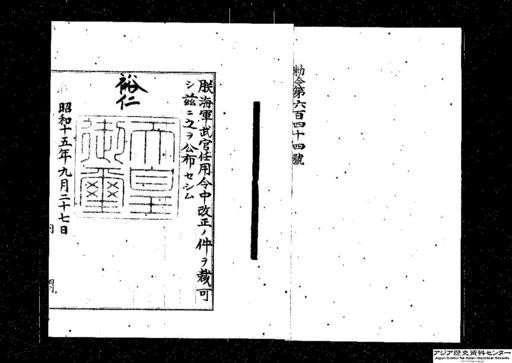 勅令第六百四十四號
朕海軍武官任用令中改正ノ件ヲ裁可
シ茲ニ之ヲ公布セシム
裕仁
天皇御璽
昭和十五年九月二十七日
内閣
アジア歴史資料センター
Japan Center for Asian Historical Records